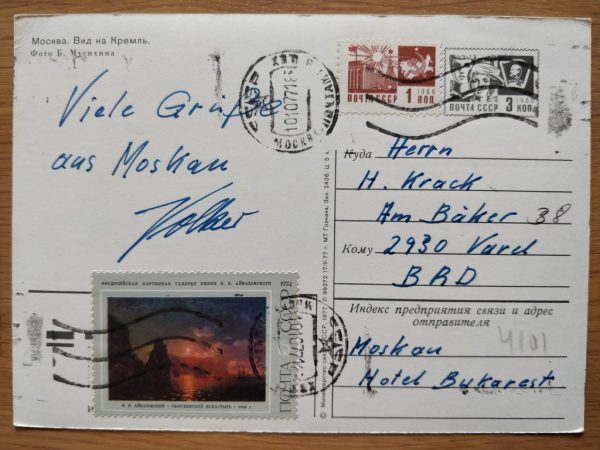 Москва. Вид на Кремль.
Фото Б. Мусихина
Viele Grüße
aus Moskau
Volker
МОСКВА
1966
ПОЧТА СССР 1 КОП
1966
ПОЧТА СССР 3 КОП
Куда
Herrn
H. Krack
Am Bäker 38
Кому
2930 Varel
BRD
Индекс предприятия связи и адрес
отправителя
4101
Moskau
Hotel Bukarest
ФЕОДОСИЙСКАЯ КАРТИННАЯ ГАЛЕРЕЯ ИМЕНИ И. К. АЙВАЗОВСКОГО 1974
ПОЧТА СССР
И. К. АЙВАЗОВСКИЙ • ГЕОРГИЕВСКИЙ МОНАСТЫРЬ •